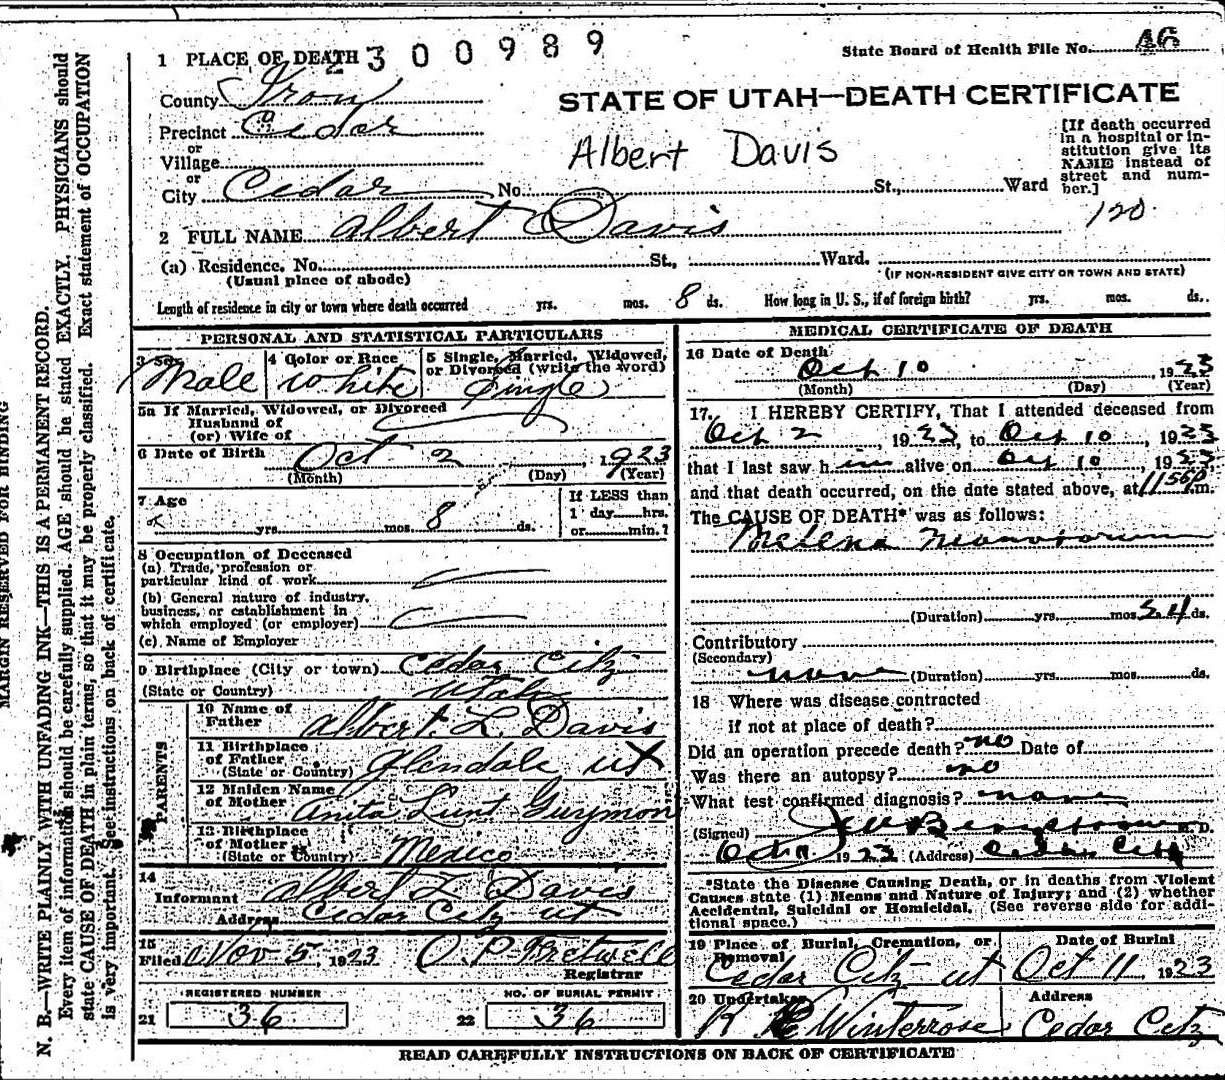 1 PLACE OF DEATH 2 3 0 0 9 8 9
State Board of Health File No. 46
County Iron
STATE OF UTAH—DEATH CERTIFICATE
Precinct Cedar
or
Village
or
City Cedar No. St., Ward
Albert Davis
[If death occurred
in a hospital or in-
stitution give its
NAME instead of
street and num-
ber.]
120
2 FULL NAME Albert Davis
(a) Residence, No. St., Ward.
(Usual place of abode)
(IF NON-RESIDENT GIVE CITY OR TOWN AND STATE)
Length of residence in city or town where death occurred yrs. mos. 8 ds. How long in U. S., if of foreign birth? yrs. mos. ds.
PERSONAL AND STATISTICAL PARTICULARS
3 Sex Male
4 Color or Race White
5 Single, Married, Widowed,
or Divorced (write the word)
Single
5a If Married, Widowed, or Divorced
Husband of
(or) Wife of
6 Date of Birth Oct 2, 1923
(Month) (Day) (Year)
7 Age yrs. mos. 8 ds.
If LESS than
1 day hrs.
or min.?
8 Occupation of Deceased
(a) Trade, profession or
particular kind of work
(b) General nature of industry,
business, or establishment in
which employed (or employer)
(c) Name of Employer
9 Birthplace (City or town) Cedar City
(State or Country) Utah
PARENTS
10 Name of
Father Albert L. Davis
11 Birthplace
of Father
(State or Country) Glendale Ut X
12 Maiden Name
of Mother Anita Lunt Guymon
13 Birthplace
of Mother
(State or Country) Mexico
14
Informant Albert L Davis
Address Cedar City Ut
15
Filed Nov 5, 1923 O. P. Fretwell
Registrar
REGISTERED NUMBER
21 36
NO. OF BURIAL PERMIT
22 36
MEDICAL CERTIFICATE OF DEATH
16 Date of Death
Oct 10, 1923
(Month) (Day) (Year)
17. I HEREBY CERTIFY, That I attended deceased from
Oct 2, 1923, to Oct 10, 1923
that I last saw him alive on Oct 10, 1923,
and that death occurred, on the date stated above, at 11 56 P.m.
The CAUSE OF DEATH* was as follows:
Melena Neonatorum
(Duration) yrs. mos. ds.
Contributory
(Secondary)
none (Duration) yrs. mos. ds.
18 Where was disease contracted
if not at place of death?
Did an operation precede death? no Date of
Was there an autopsy? no
What test confirmed diagnosis? none
(Signed) M. D.
Oct 11, 1923 (Address) Cedar City
*State the Disease Causing Death, or in deaths from Violent
Causes state (1) Means and Nature of Injury; and (2) whether
Accidental, Suicidal or Homicidal. (See reverse side for addi-
tional space.)
19 Place of Burial, Cremation, or
Removal
Cedar City Ut
Date of Burial
Oct 11 1923
20 Undertaker
Winterrose
Address
Cedar City
READ CAREFULLY INSTRUCTIONS ON BACK OF CERTIFICATE
MARGIN RESERVED FOR BINDING
N. B.—WRITE PLAINLY WITH UNFADING INK—THIS IS A PERMANENT RECORD.
Every item of information should be carefully supplied. AGE should be stated EXACTLY. PHYSICIANS should
state CAUSE OF DEATH in plain terms, so that it may be properly classified. Exact statement of OCCUPATION
is very important. See instructions on back of certificate.